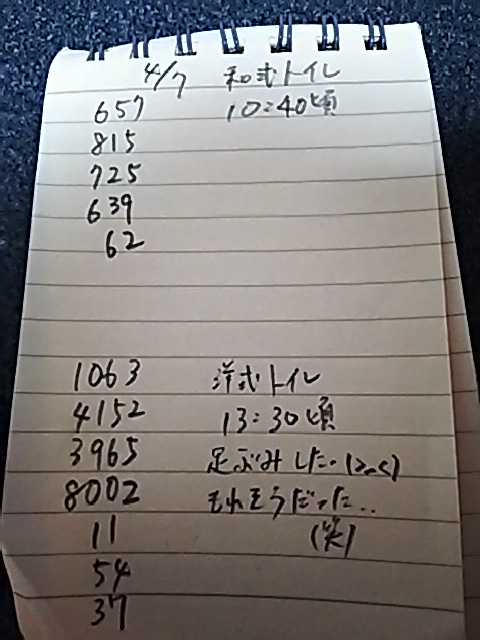 4/7 和式トイレ
657 10:40頃
815
725
639
62
1063 洋式トイレ
4152 13:30頃
3965 足ぶみした。
8002 もれそうだった...
11 (笑)
54
37